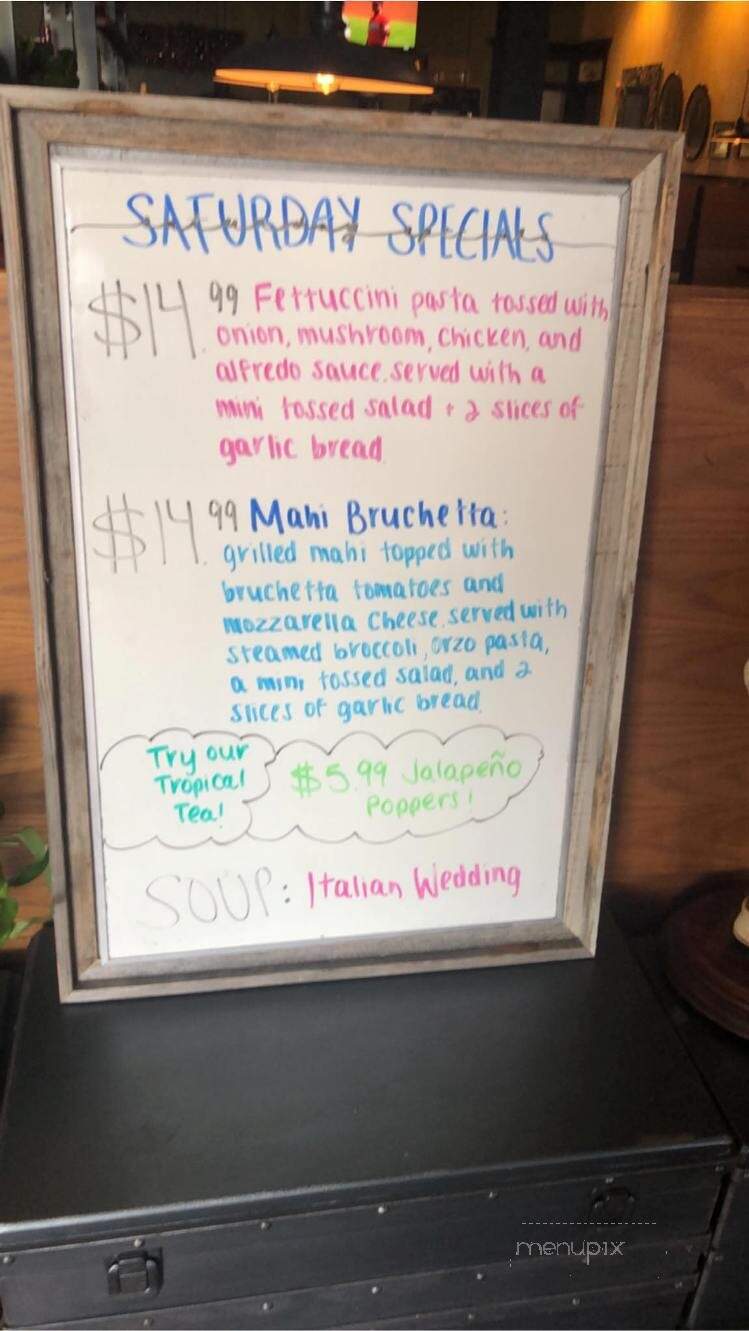 SATURDAY SPECIALS
$14.99 Fettuccini pasta tossed with
onion, mushroom, chicken, and
alfredo sauce. served with a
mini tossed salad + 2 slices of
garlic bread
$14.99 Mahi Bruchetta:
grilled mahi topped with
bruchetta tomatoes and
mozzarella cheese. served with
steamed broccoli, orzo pasta,
a mini tossed salad, and 2
slices of garlic bread.
Try our
Tropical
Tea!
$5.99 Jalapeño
Poppers!
SOUP: Italian Wedding
menupix